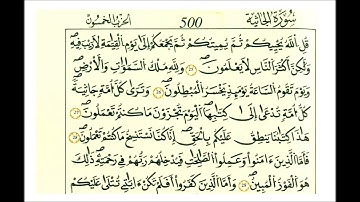 سُورَةُ الجَاثِيَة 500 الحزب الخمسون
قُلِ اللَّهُ يُحْيِيكُمْ ثُمَّ يُمِيتُكُمْ ثُمَّ يَجْمَعُكُمْ إِلَى يَوْمِ الْقِيَٰمَةِ لَا رَيْبَ فِيهِ
وَلَٰكِنَّ أَكْثَرَ النَّاسِ لَا يَعْلَمُونَ وَلِلَّهِ مُلْكُ السَّمَٰوَاتِ وَالْأَرْضِ
وَيَوْمَ تَقُومُ السَّاعَةُ يَوْمَئِذٍ يَخْسَرُ الْمُبْطِلُونَ وَتَرَىٰ كُلَّ أُمَّةٍ جَاثِيَةً
كُلُّ أُمَّةٍ تُدْعَىٰ إِلَىٰ كِتَٰبِهَا الْيَوْمَ تُجْزَوْنَ مَا كُنتُمْ تَعْمَلُونَ
هَٰذَا كِتَٰبُنَا يَنطِقُ عَلَيْكُم بِالْحَقِّ إِنَّا كُنَّا نَسْتَنسِخُ مَا كُنتُمْ تَعْمَلُونَ
فَأَمَّا الَّذِينَ ءَامَنُوا وَعَمِلُوا الصَّٰلِحَٰتِ فَيُدْخِلُهُمْ رَبُّهُمْ فِي رَحْمَتِهِ ذَٰلِكَ
هُوَ الْفَوْزُ الْمُبِينُ وَأَمَّا الَّذِينَ كَفَرُوا أَفَلَمْ تَكُنْ ءَايَٰتِي تُتْلَىٰ عَلَيْكُمْ